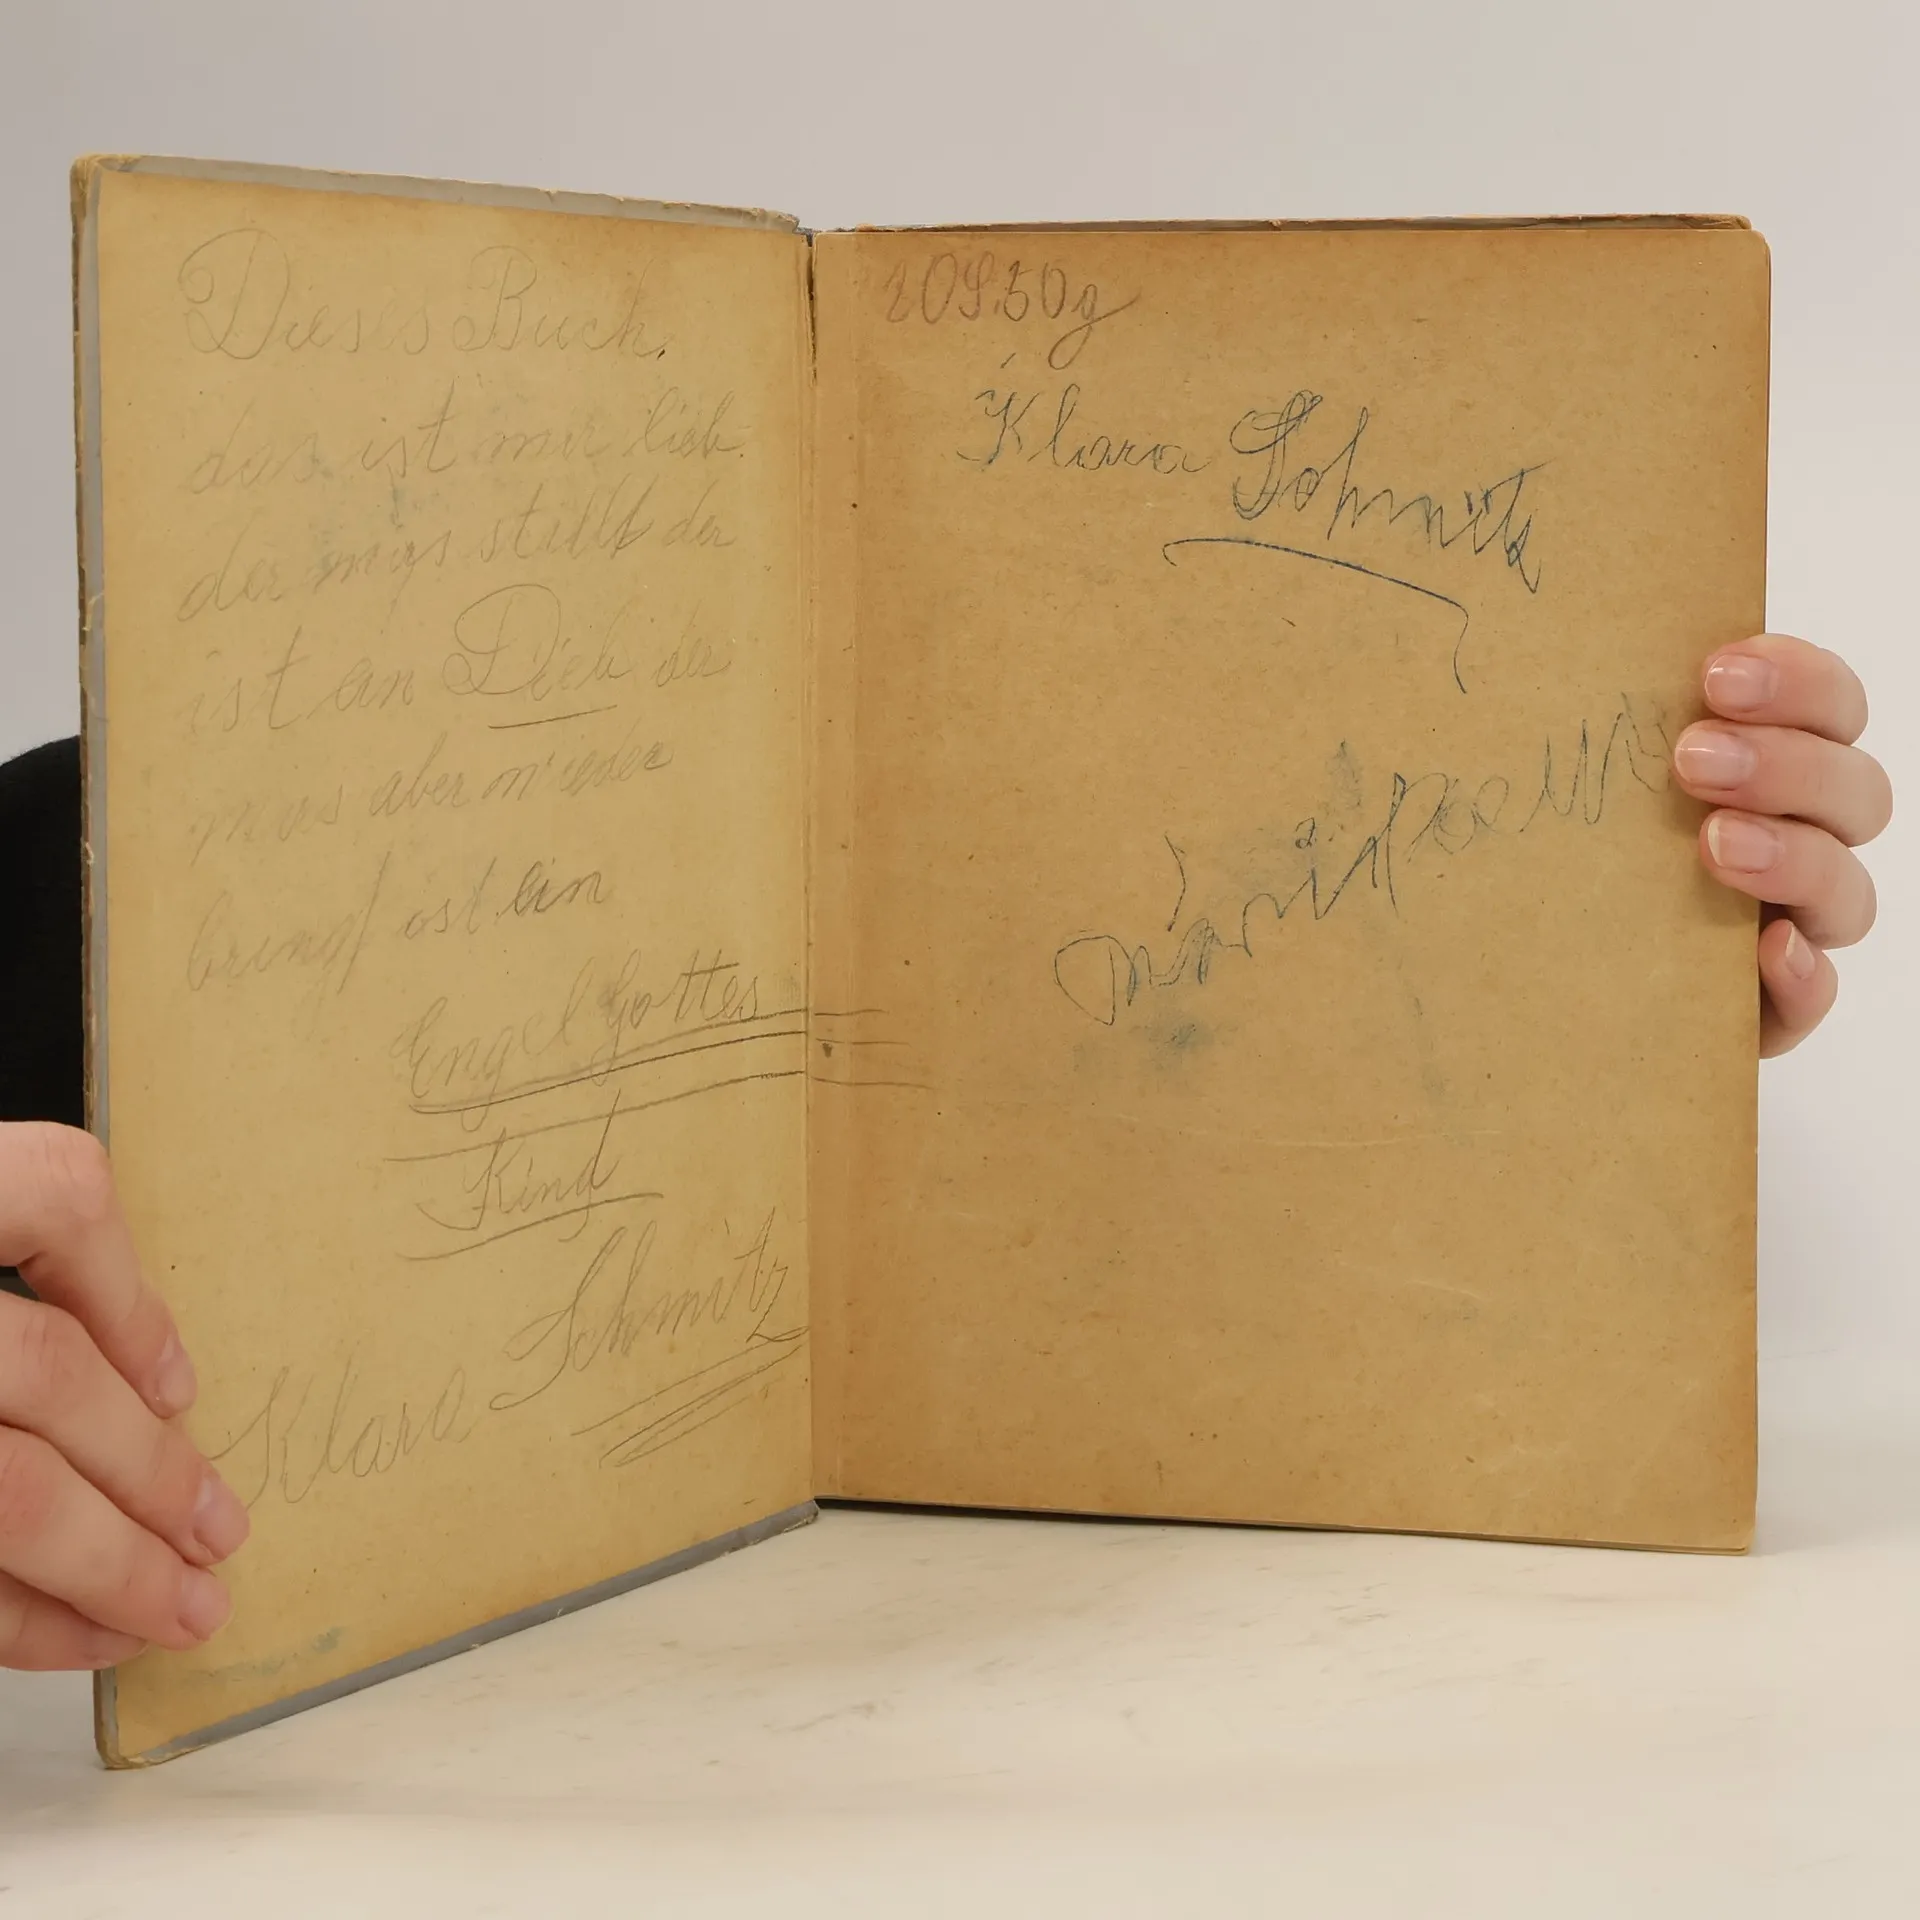 Dieses Buch.
das ist mir lieb.
der mys stillt der
ist ein Dieb der
mus aber wieder
bringt ist ein
Engel Gottes
Kind
Klara Schmitz
Klara Schmitz